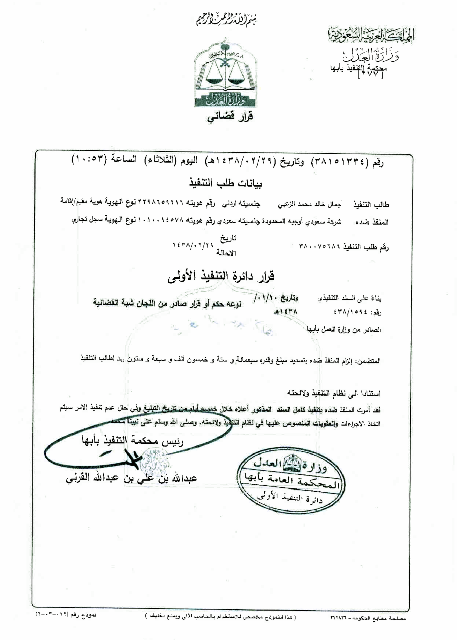 بسم الله الرحمن الرحيم
المملكة العربية السعودية
وزارة العدل
محكمة التنفيذ بأبها
وزارة العدل
قرار قضائي
رقم (٣٨١٥١٣٣٤) وتاريخ (١٤٣٨/٠٢/٢٩هـ) اليوم (الثلاثاء) الساعة (١٠:٥٣)
بيانات طلب التنفيذ
طالب التنفيذ جمال خالد محمد الزعبي جنسيته أردني رقم هويته نوع الهوية هوية مقيم/إقامة
المنفذ ضده شركة سعودي أوجيه المحدودة جنسيته سعودي رقم هويته ١٠١٠٠١٤٥٧٨ نوع الهوية سجل تجاري
رقم طلب التنفيذ ٣٨٠٠٧٥٦٨٦ تاريخ الاحالة ١٤٣٨/٠٢/٢٦
قرار دائرة التنفيذ الأولى
بناءً على السند التنفيذي وتاريخ ٠١/١٠/ نوعه حكم أو قرار صادر من اللجان شبة القضائية
رقم: ٤٣٨/١٥٩٤ ١٤٣٨هـ
الصادر من وزارة العمل بأبها
المتضمن: إلزام المنفذ ضده بتسديد مبلغ وقدره سبعمائة و ستة و خمسون الف و سبعة و ستون ريال لطالب التنفيذ
استنادا الى نظام التنفيذ ولائحته
لقد أمرت المنفذ ضده بتنفيذ كامل السند المذكور أعلاه خلال خمسة أيام من تاريخ التبليغ وفي حال عدم تنفيذ الامر سيتم
اتخاذ الاجراءات والعقوبات المنصوص عليها في نظام التنفيذ ولائحته. وصلى الله وسلم على نبينا محمد
رئيس محكمة التنفيذ بأبها
عبدالله بن علي بن عبدالله القرني
وزارة العدل
المحكمة العامة بأبها
دائرة التنفيذ الأولى
مصلحة مطابع الحكومة
( هذا النموذج مخصص للاستخدام بالحاسب الآلي ويمنع تغليفه )
نموذج رقم